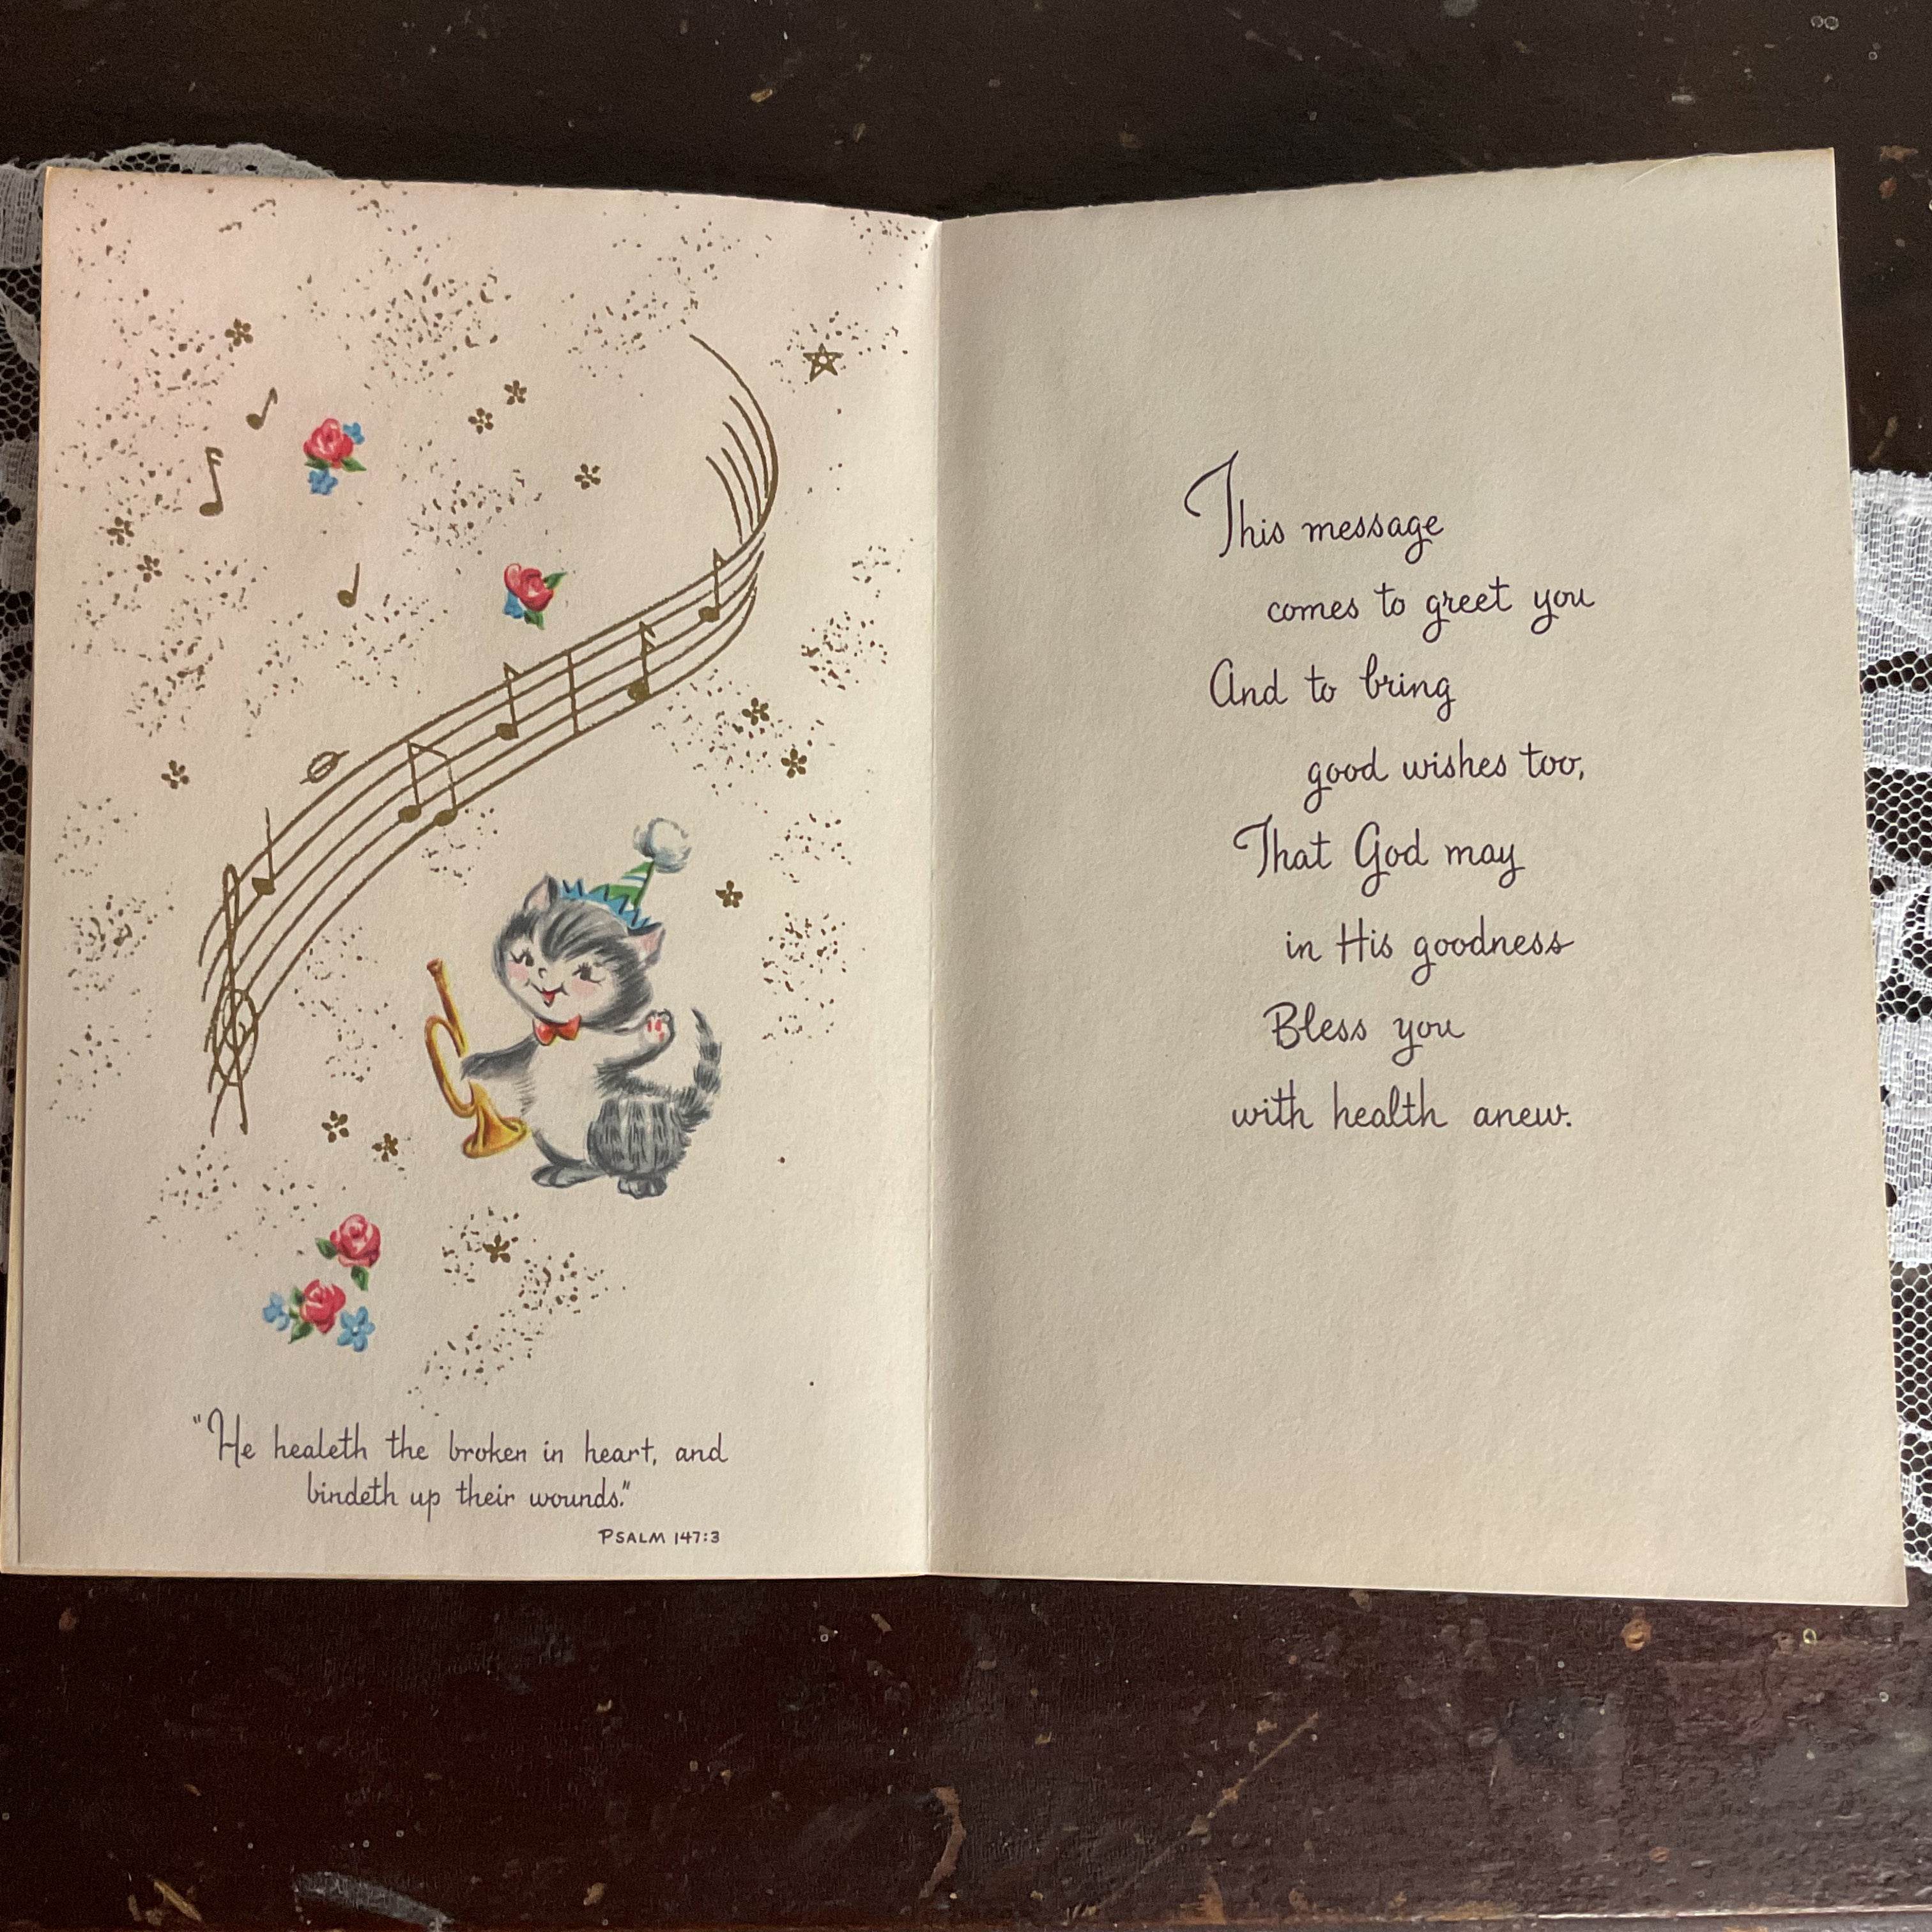 "He healeth the broken in heart, and
bindeth up their wounds."
PSALM 147:3
This message
comes to greet you
And to bring
good wishes too,
That God may
in His goodness
Bless you
with health anew.